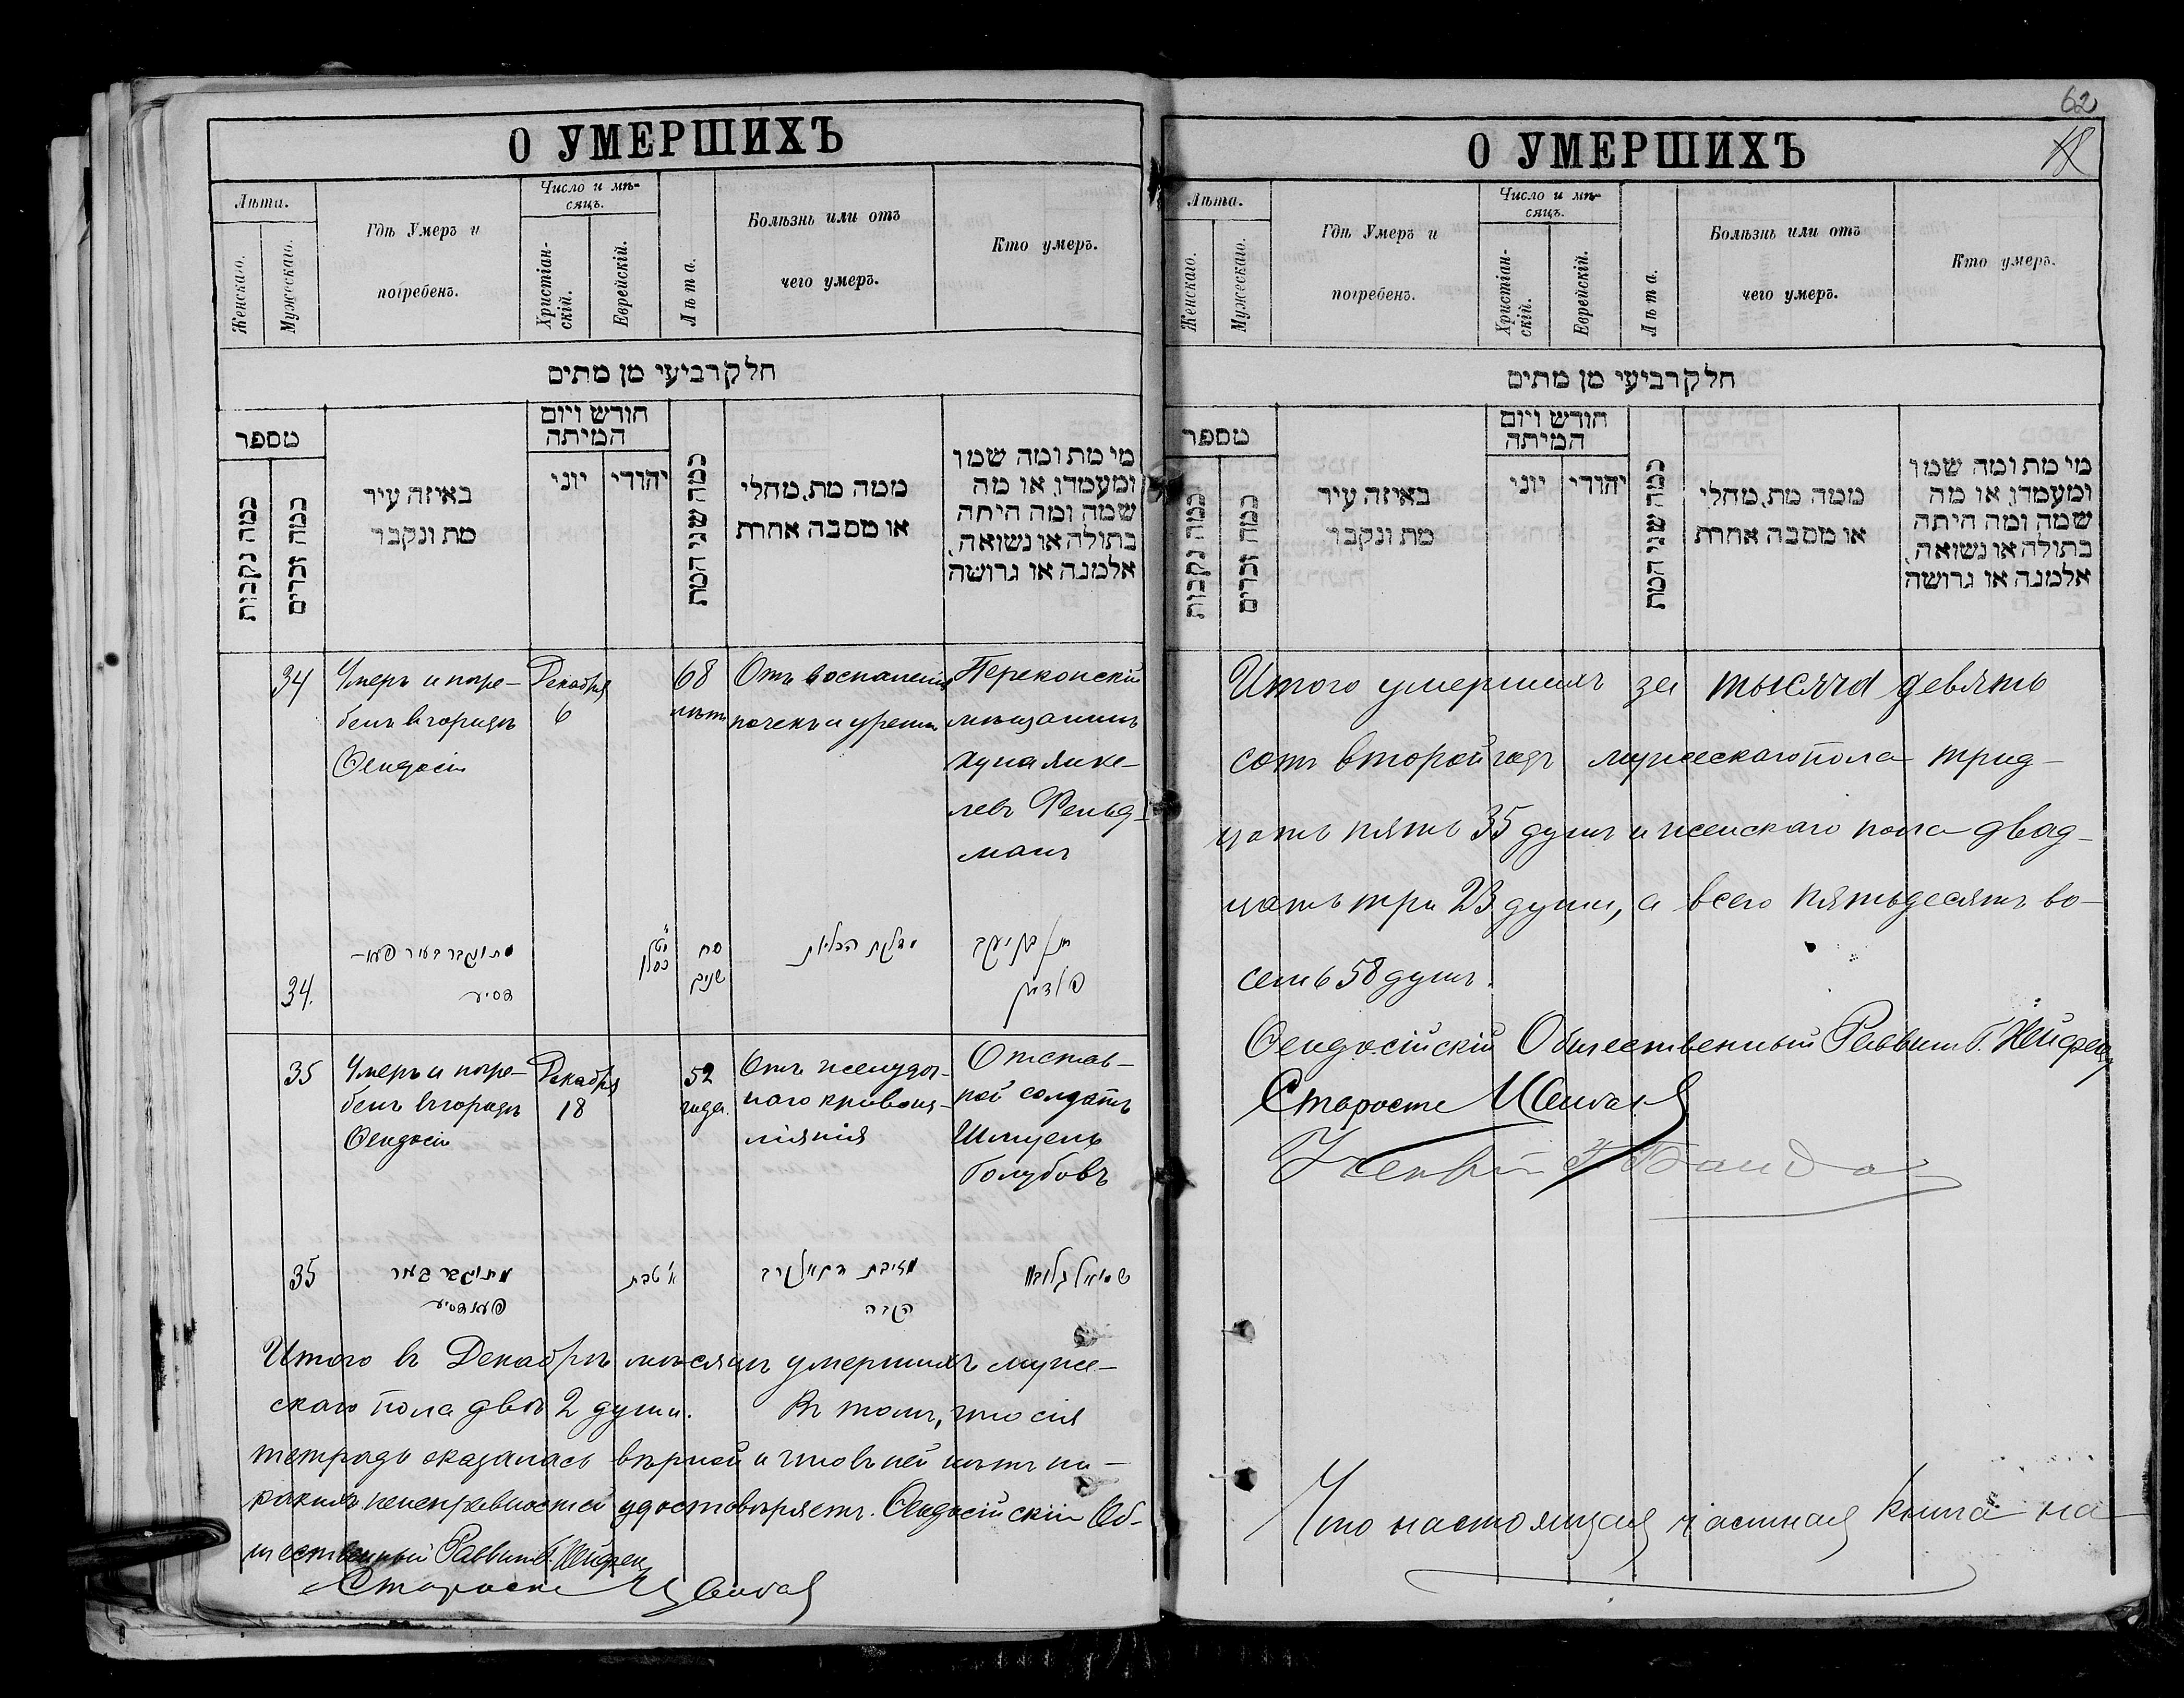 О УМЕРШИХЪ
Лѣта.
Женскаго.
Мужескаго.
Гдѣ Умеръ и
погребенъ.
Число и мѣ-
сяцъ.
Христіан-
скій.
Еврейскій.
Лѣта.
Болѣзнь или отъ
чего умеръ.
Кто умеръ.
חלק רביעי מן מתים
מספר
כמה נקבות
כמה זכרים
באיזה עיר
מת ונקבר
חודש ויום
המיתה
יוני
יהודי
כמה שני המת
ממה מת, מחלי
או מסבה אחרת
מי מת ומה שמו
ומעמדו, או מה
שמה ומה היתה
בתולה או נשואה,
אלמנה או גרושה
34
Умеръ и погре-
бенъ в городѣ
Ѳеодосіи
Декабря
6
68
лѣтъ
Отъ воспаленія
почекъ и
Перекопскій
мѣщанинъ
Янке-
левъ Фельд-
манъ
34.
מת ונקבר בעיר פעא-
דסיע
כסלו
סח
שנים
דלקת הכליות
בן יעקב
פעלדמן
35
Умеръ и погре-
бенъ в городѣ
Ѳеодосіи
Декабря
18
52
года.
Отъ желудоч-
наго кровоиз-
ліянія
Отстав-
ной солдатъ
Шмуель
Голубовъ
35
מת ונקבר בעיר
פעאדסיע
טבת
שמואל
Итого въ Декабрѣ мѣсяцѣ умершихъ муже-
скаго пола двѣ 2 души. Въ томъ, что сія
тетрадь оказалась вѣрной и что въ ней нѣтъ ни-
какихъ неисправностей удостовѣряетъ. Ѳеодосійскій Об-
щественный Раввинъ Г.
Староста
62
О УМЕРШИХЪ
18
Лѣта.
Женскаго.
Мужескаго.
Гдѣ Умеръ и
погребенъ.
Число и мѣ-
сяцъ.
Христіан-
скій.
Еврейскій.
Лѣта.
Болѣзнь или отъ
чего умеръ.
Кто умеръ.
חלק רביעי מן מתים
מספר
כמה נקבות
כמה זכרים
באיזה עיר
מת ונקבר
חודש ויום
המיתה
יוני
יהודי
כמה שני המת
ממה מת, מחלי
או מסבה אחרת
מי מת ומה שמו
ומעמדו, או מה
שמה ומה היתה
בתולה או נשואה,
אלמנה או גרושה
Итого умершихъ за тысяча девять
сотъ второй годъ мужескаго пола трид-
цать пять 35 душъ и женскаго пола двад-
цать три 23 души, а всего пятьдесятъ во-
семь 58 душъ.
Ѳеодосійскій Общественный Раввинъ Г.
Староста
Что настоящая частная книга на